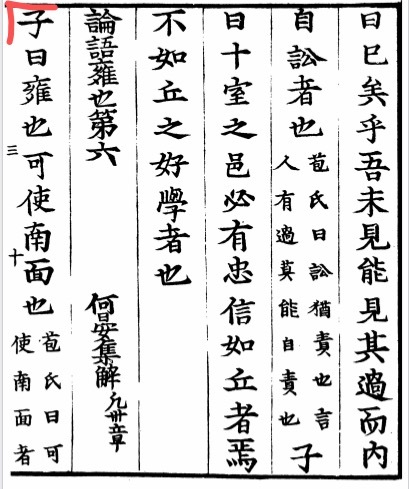 曰已矣乎吾未見能見其過而内
自訟者也苞氏曰訟猶責也言人有過莫能自責也子
曰十室之邑必有忠信如丘者焉
不如丘之好學者也
論語雍也第六 何晏集解凡卅章
子曰雍也可使南面也苞氏曰可使南面者
三
十